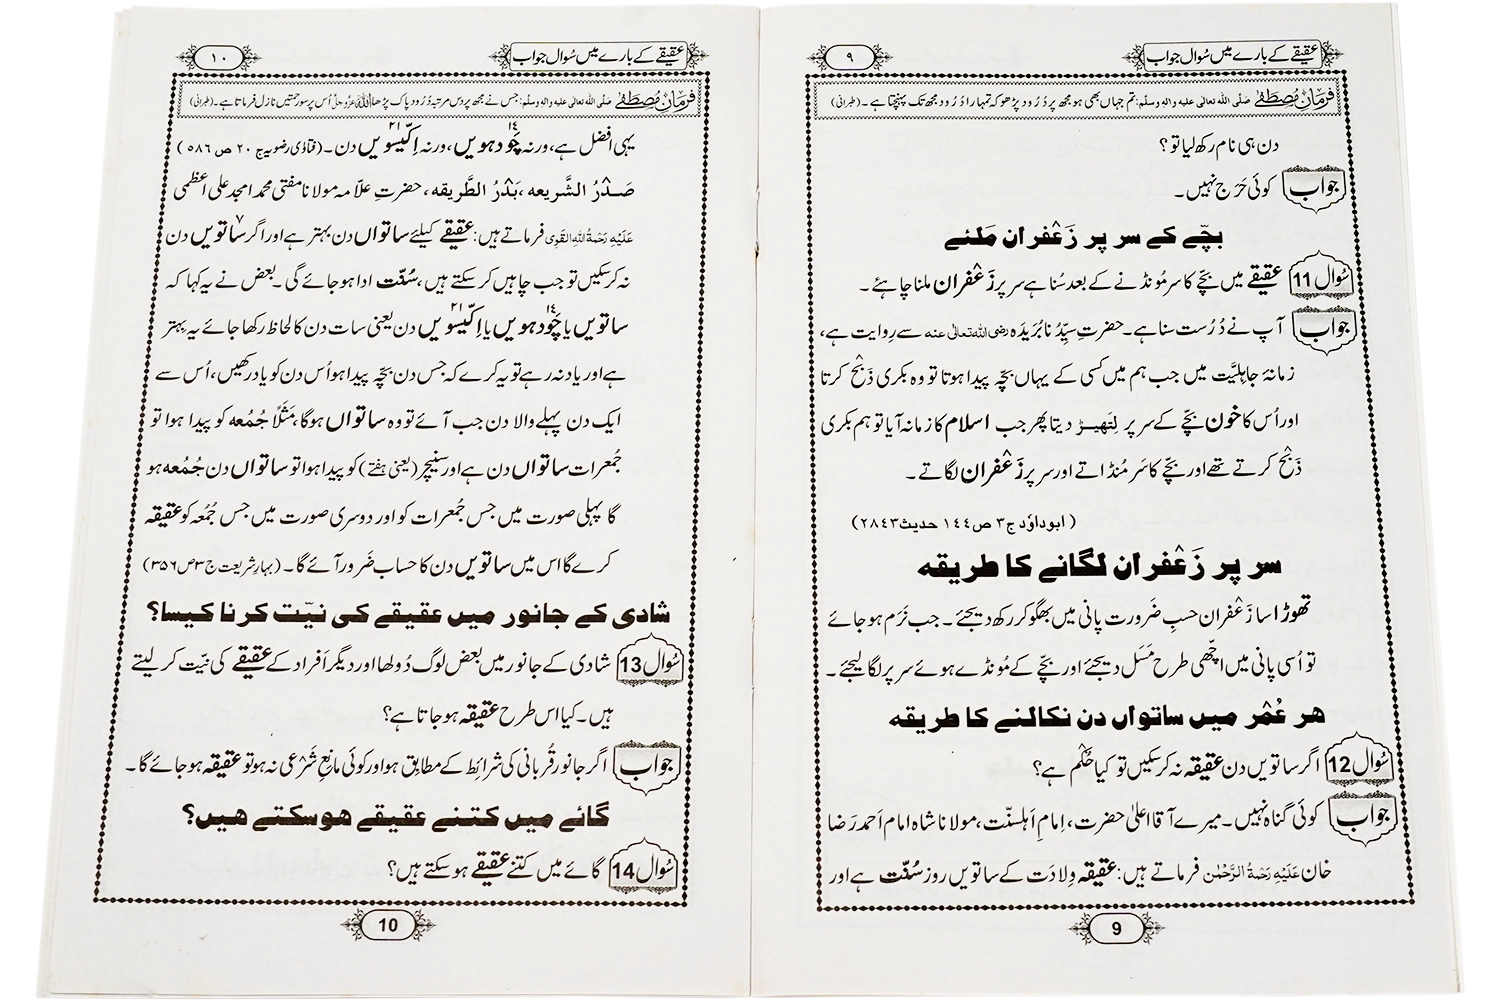 عقیقے کے بارے میں سُوال جواب
۹
فرمانِ مُصطَفٰے صَلَّی اللہ تعالٰی علیہ والہٖ وسلَّم: تم جہاں بھی ہو مجھ پر دُرُود پڑھو کہ تمہارا دُرُود مجھ تک پہنچتا ہے۔ (طبرانی)
دن ہی نام رکھ لیا تو؟
جواب کوئی حَرَج نہیں۔
بچّے کے سر پر زَعْفران مَلئے
سُوال 11 عقیقے میں بچّے کا سر مُونڈنے کے بعد سُنا ہے سر پر زَعْفران ملنا چاہئے۔
جواب آپ نے دُرُست سنا ہے۔ حضرتِ سیِّدُنا بُرَیدَہ رضی اللہ تعالٰی عنہ سے رِوایت ہے،
زمانۂ جاہلیَّت میں جب ہم میں کسی کے یہاں بچّہ پیدا ہوتا تو وہ بکری ذَبْح کرتا
اور اُس کا خون بچّے کے سر پر لِتھیڑ دیتا پھر جب اسلام کا زمانہ آیا تو ہم بکری
ذَبْح کرتے تھے اور بچّے کا سَر مُنڈاتے اور سر پر زَعْفران لگاتے۔
(ابوداوٗد ج۳ ص۱۴۴ حدیث۲۸۴۳)
سر پر زَعْفران لگانے کا طریقہ
تھوڑا سا زَعْفران حسبِ ضَرورت پانی میں بھگو کر رکھ دیجئے۔ جب نَرم ہو جائے
تو اُسی پانی میں اچّھی طرح مَسَل دیجئے اور بچّے کے مُونڈے ہوئے سر پر لگا لیجئے۔
ھر عُمْر میں ساتواں دن نکالنے کا طریقہ
سُوال 12 اگر ساتویں دن عقیقہ نہ کر سکیں تو کیا حُکْم ہے؟
جواب کوئی گناہ نہیں۔ میرے آقا اعلیٰ حضرت، اِمامِ اَہلسنّت، مولانا شاہ امام اَحمد رَضا
خان عَلَیْہِ رَحْمَۃُ الرَّحْمٰن فرماتے ہیں: عقیقہ وِلادَت کے ساتویں روز سُنّت ہے اور
9
عقیقے کے بارے میں سُوال جواب
۱۰
فرمانِ مُصطَفٰے صَلَّی اللہ تعالٰی علیہ والہٖ وسلَّم: جس نے مجھ پر دس مرتبہ دُرُود پاک پڑھا اللہ عَزَّوَجَلَّ اُس پر سو رحمتیں نازل فرماتا ہے۔ (طبرانی)
یہی افضل ہے، ورنہ چَودھویں۱۴، ورنہ اِکّیسویں۲۱ دن۔ (فتاوٰی رضویہ ج ۲۰ ص ۵۸۶)
صَدْرُ الشَّریعہ، بَدْرُ الطَّریقہ، حضرتِ علّامہ مولانا مفتی محمد امجد علی اعظمی
عَلَیْہِ رَحْمَۃُ اللہِ القَوِی فرماتے ہیں: عقیقے کیلئے ساتواں دن بہتر ہے اور اگر ساتویں۷ دن
نہ کر سکیں تو جب چاہیں کر سکتے ہیں، سُنّت ادا ہو جائے گی۔ بعض نے یہ کہا کہ
ساتویں یا چَودھویں۱۴ یا اِکّیسویں۲۱ دن یعنی سات دن کا لحاظ رکھا جائے یہ بہتر
ہے اور یاد نہ رہے تو یہ کرے کہ جس دن بچّہ پیدا ہو اُس دن کو یاد رکھیں، اُس سے
ایک دن پہلے والا دن جب آئے تو وہ ساتواں ہوگا، مَثَلًا جُمُعہ کو پیدا ہوا تو
جُمعرات ساتواں دن ہے اور سنیچر (یعنی ہفتے) کو پیدا ہوا تو ساتواں دن جُمُعہ ہو
گا پہلی صورت میں جس جُمعرات کو اور دوسری صورت میں جس جُمُعہ کو عقیقہ
کرے گا اس میں ساتویں دن کا حساب ضَرور آئے گا۔ (بہارِ شریعت ج۳ ص۳۵۶)
شادی کے جانور میں عقیقے کی نیّت کرنا کیسا؟
سُوال 13 شادی کے جانور میں بعض لوگ دُولہا اور دیگر اَفراد کے عقیقے کی نیّت کر لیتے
ہیں۔ کیا اس طرح عقیقہ ہو جاتا ہے؟
جواب اگر جانور قُربانی کی شرائط کے مطابِق ہو اور کوئی مانِعِ شَرْعی نہ ہو تو عقیقہ ہو جائے گا۔
گائے میں کتنے عقیقے ھو سکتے ھیں؟
سُوال 14 گائے میں کتنے عقیقے ہو سکتے ہیں؟
10